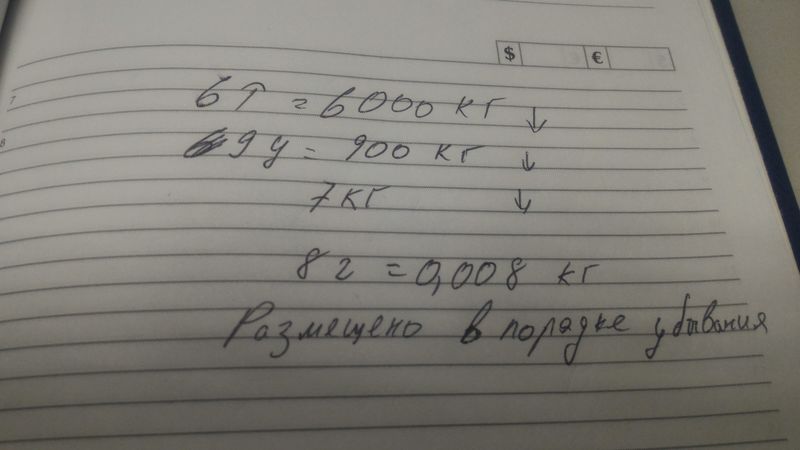 $ €
7
6т = 6000 кг ↓
9 ц = 900 кг ↓
8
7 кг ↓
8 г = 0,008 кг
Размещено в порядке убывания